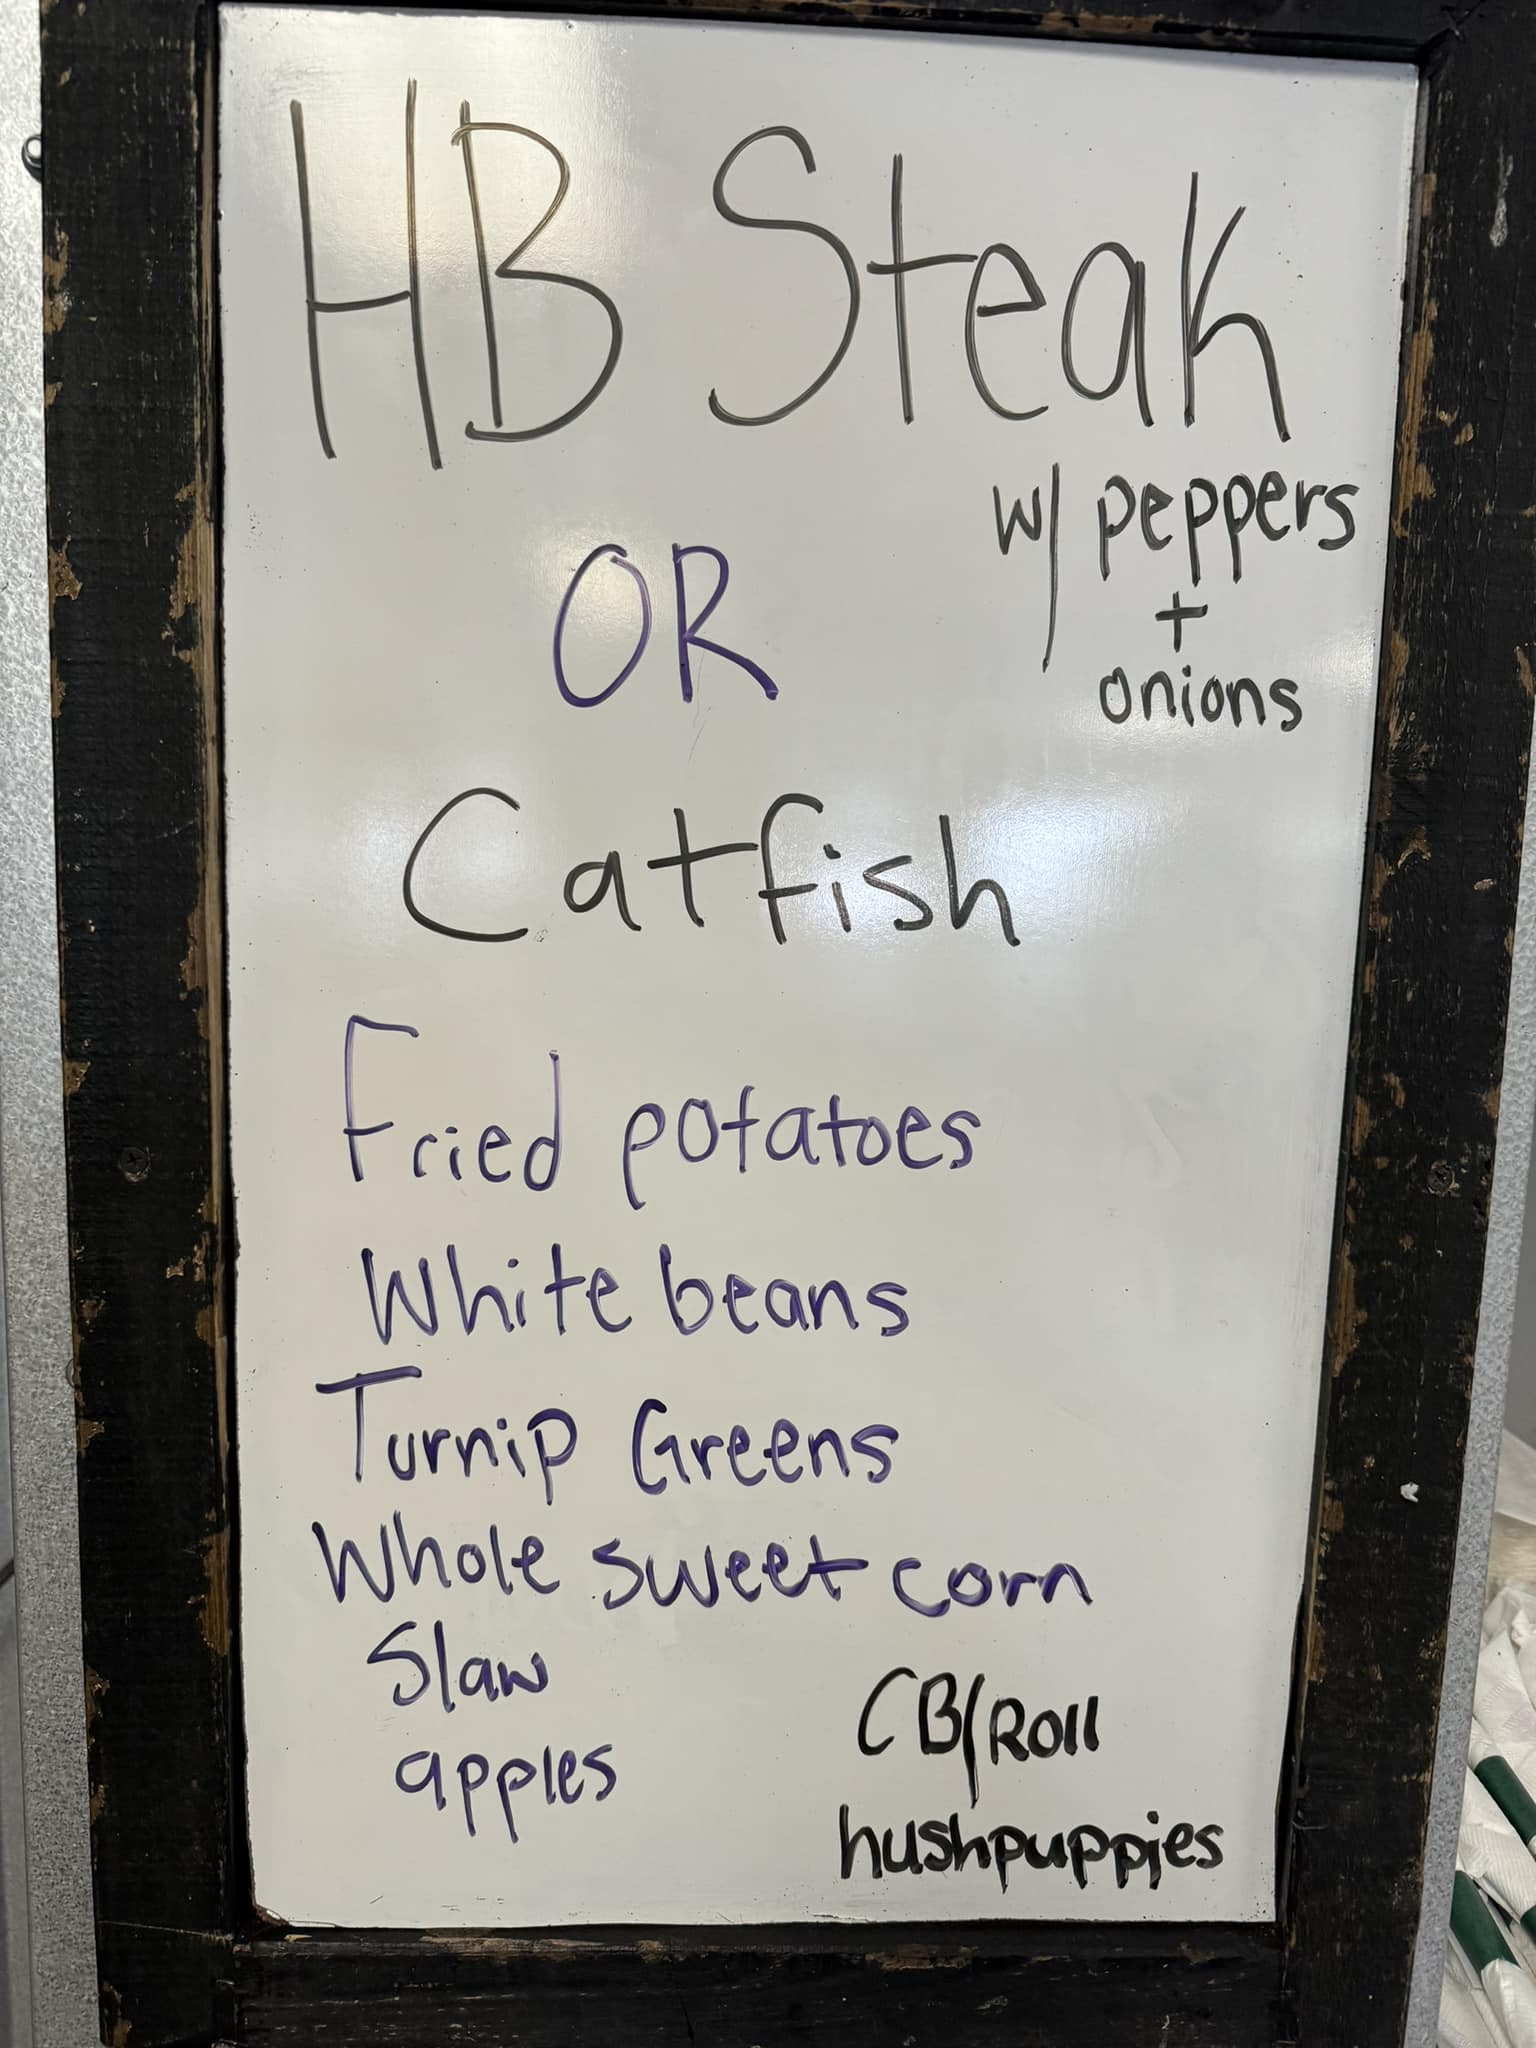 HB Steak
w/ peppers
+
onions
OR
Catfish
Fried potatoes
White beans
Turnip Greens
Whole sweet corn
Slaw
apples
CB/Roll
hushpuppies